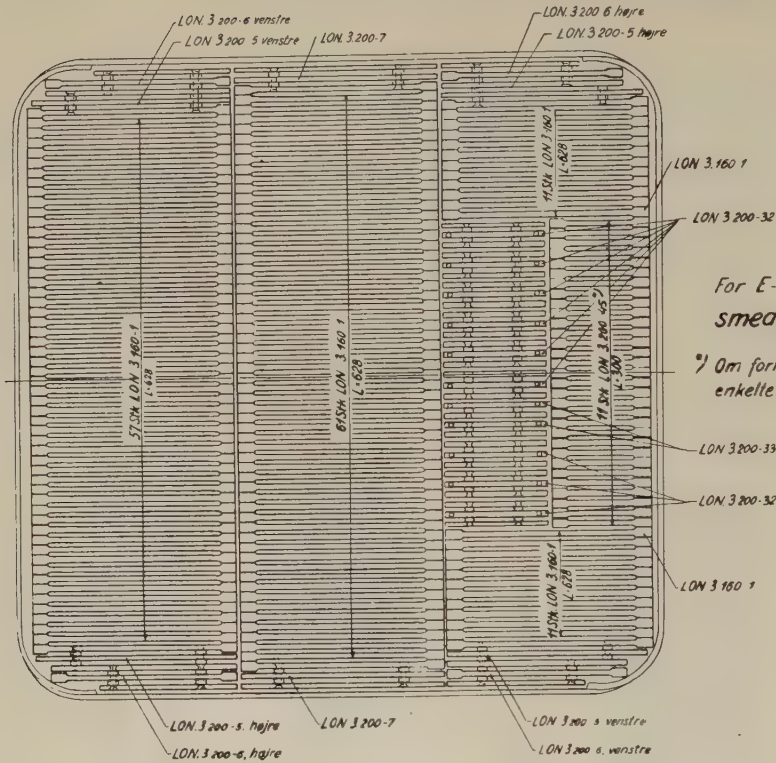 LON. 3 200-6 venstre
LON. 3 200 5 venstre
LON. 3.200-7
LON. 3 200 6 højre
LON. 3 200-5 højre
11 Stk LON 3 160 1
L=628
LON 3.160 1
LON 3.200-32
For E-
smea
*) Om fork
enkelte
57 Stk LON 3 160-1
L=628
61 Stk LON 3 160 1
L=628
11 Stk LON 3.200 45*)
L=300
LON 3.200-33
LON. 3 200-32
11 Stk LON 3.160-1
L=628
LON 3 160 1
LON. 3 200-5. højre
LON. 3 200-6, højre
LON. 3 200-7
LON 3 200 5 venstre
LON 3 200 6, venstre